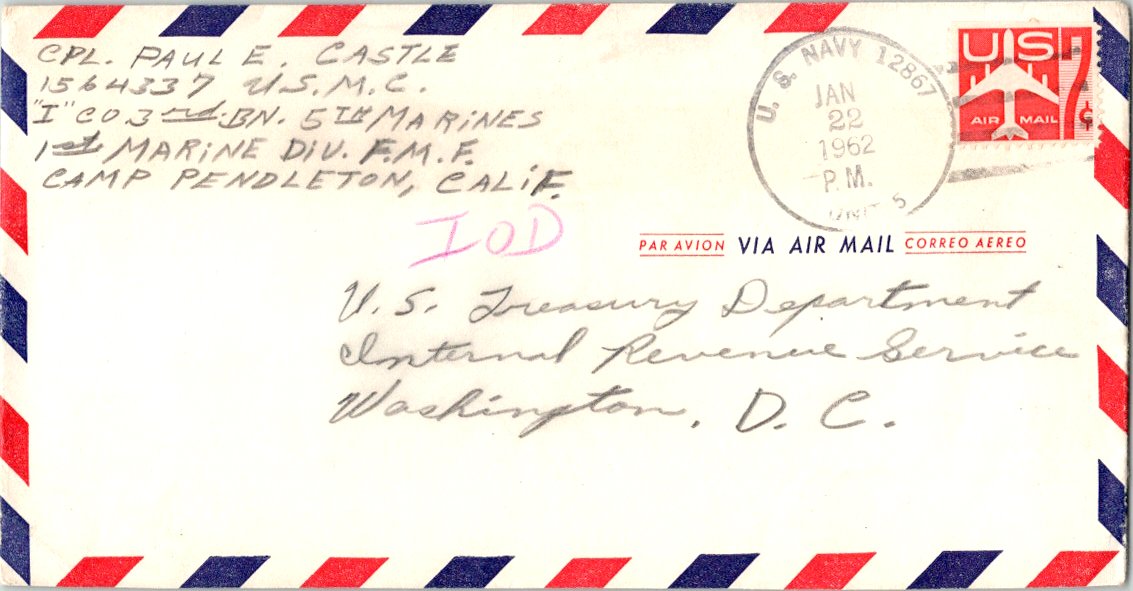 CPL. PAUL E. CASTLE
1564337 U.S.M.C.
"I" CO 3rd. BN. 5TH MARINES
1st MARINE DIV. F.M.F.
CAMP PENDLETON, CALIF.
U. S. NAVY 12867
JAN
22
1962
P.M.
UNIT 5
US
7¢
AIR MAIL
IOD
PAR AVION VIA AIR MAIL CORREO AEREO
U.S. Treasury Department
Internal Revenue Service
Washington, D. C.